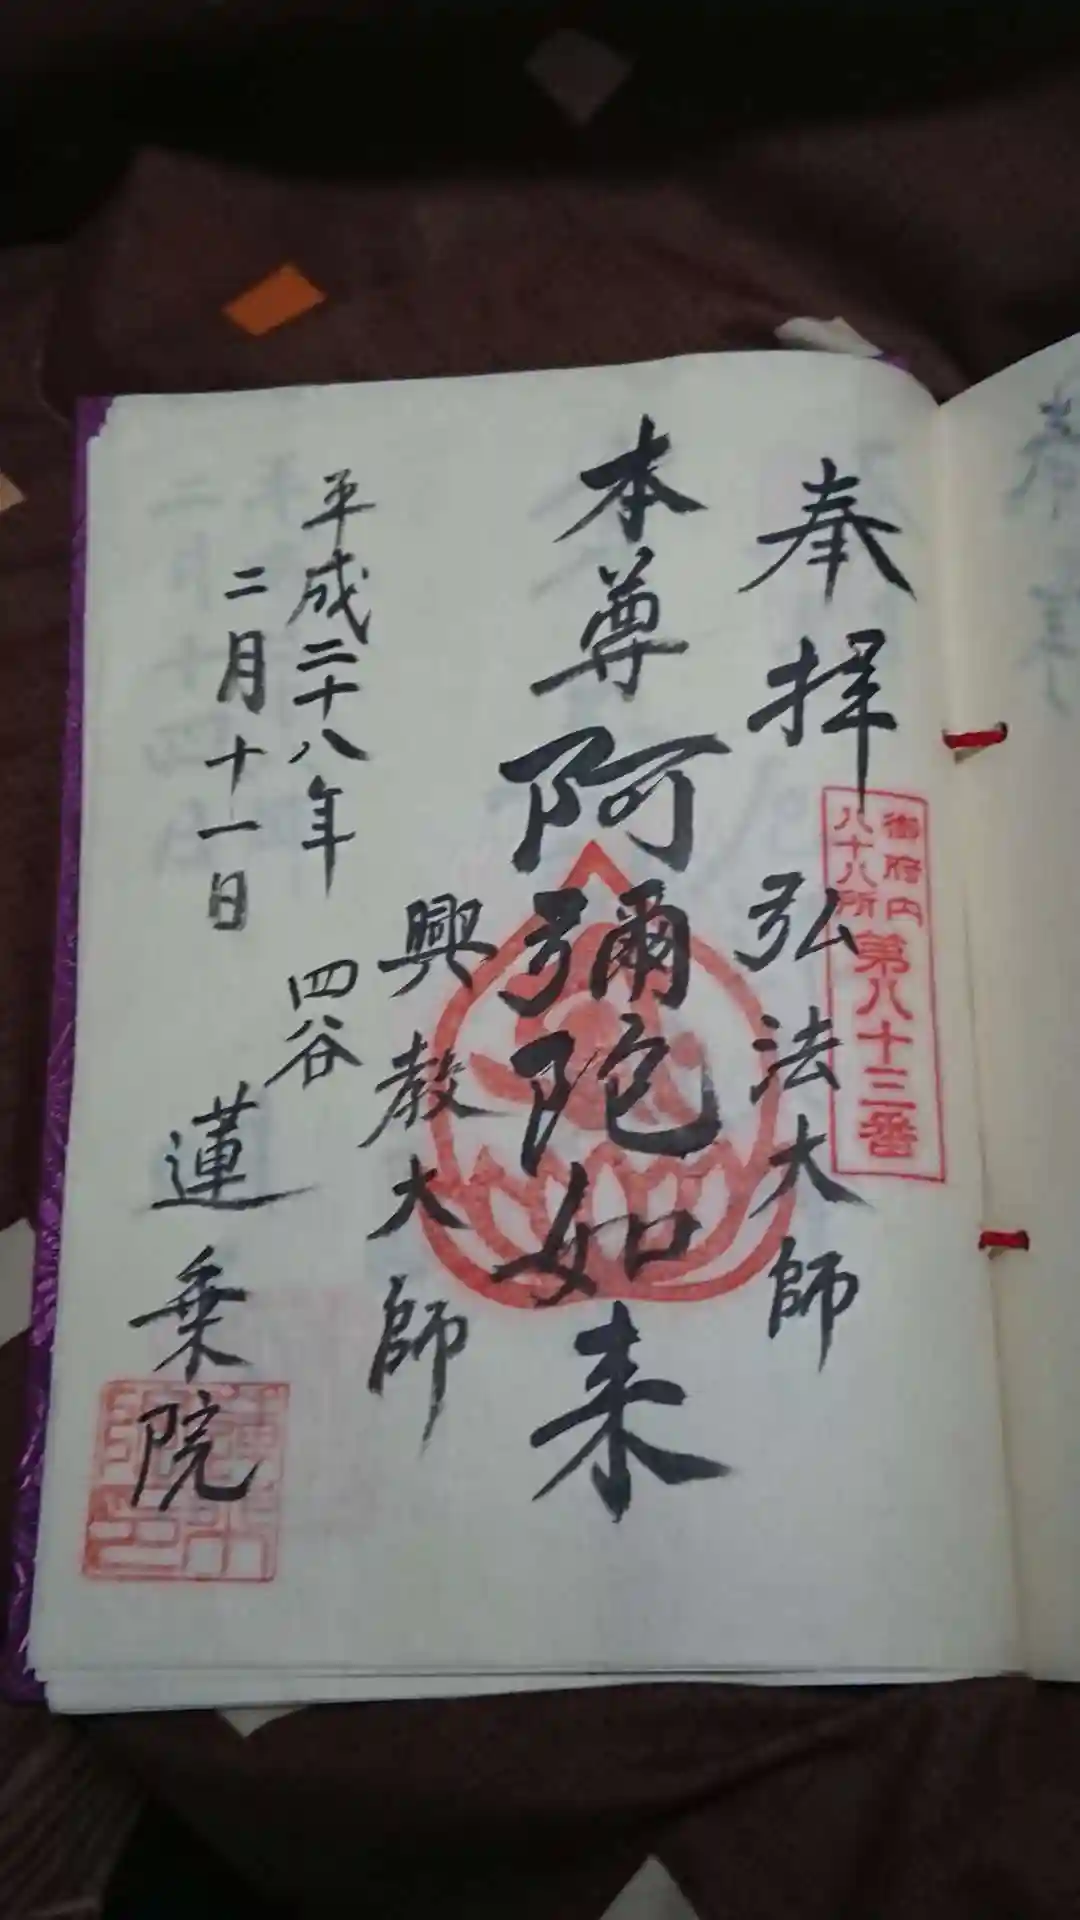 奉拝
弘法大師
御府内
八十八所
第八十三番
本尊
阿彌陀如来
興教大師
平成二十八年
二月十一日
四谷
蓮乗院